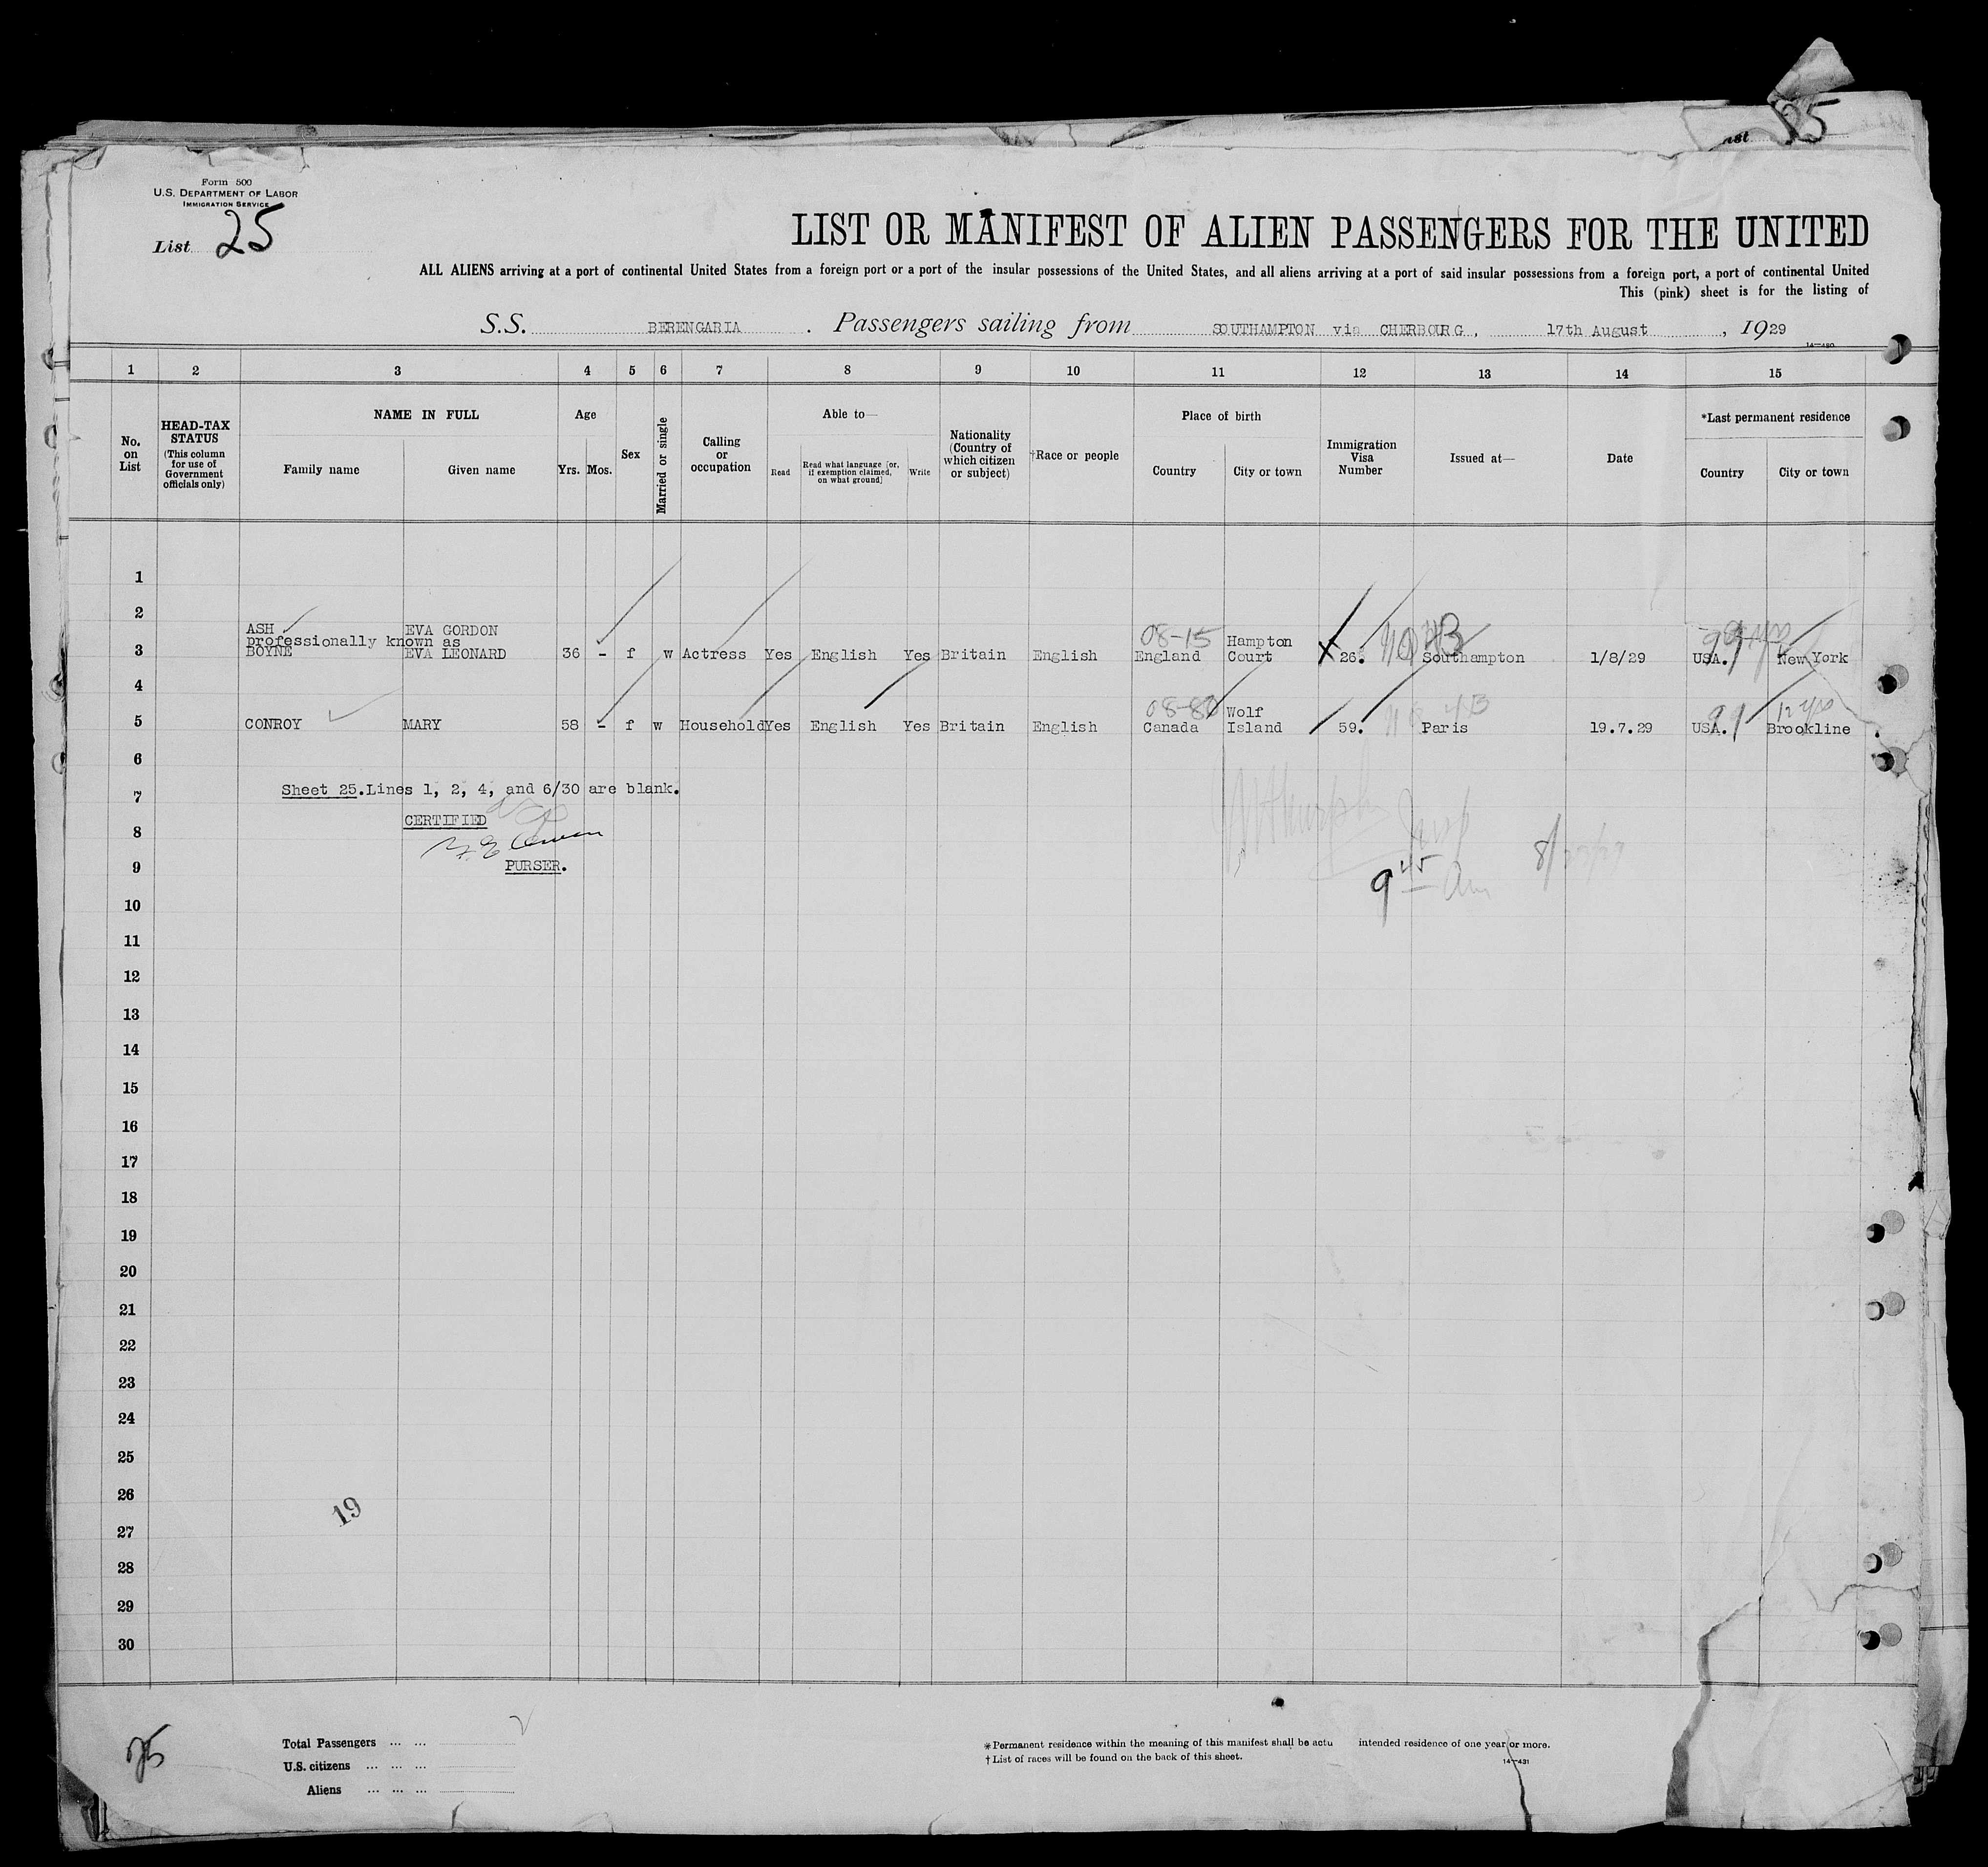 ist 25
Form 500
U.S. DEPARTMENT OF LABOR
IMMIGRATION SERVICE
List 25
LIST OR MANIFEST OF ALIEN PASSENGERS FOR THE UNITED
ALL ALIENS arriving at a port of continental United States from a foreign port or a port of the insular possessions of the United States, and all aliens arriving at a port of said insular possessions from a foreign port, a port of continental United
This (pink) sheet is for the listing of
S.S. BERENGARIA . Passengers sailing from SOUTHAMPTON via CHERBOURG, 17th August, 1929
14—480
1 2 3 4 5 6 7 8 9 10 11 12 13 14 15
No. on List
HEAD-TAX STATUS (This column for use of Government officials only)
NAME IN FULL
Family name Given name
Age
Yrs. Mos.
Sex
Married or single
Calling or occupation
Able to—
Read
Read what language [or, if exemption claimed, on what ground]
Write
Nationality (Country of which citizen or subject)
†Race or people
Place of birth
Country City or town
Immigration Visa Number
Issued at—
Date
*Last permanent residence
Country City or town
1
2
ASH EVA GORDON
professionally known as
08-15 Hampton
3 BOYNE EVA LEONARD 36 - f w Actress Yes English Yes Britain English England Court 26. Southampton 1/8/29 USA. New York
4
08-80 Wolf 12 yrs
5 CONROY MARY 58 - f w Household Yes English Yes Britain English Canada Island 59. Paris 19.7.29 USA. Brookline
6
7 Sheet 25.Lines 1, 2, 4, and 6/30 are blank.
CERTIFIED
8
PURSER.
9
9 45 am
10
11
12
13
14
15
16
17
18
19
20
21
22
23
24
25
26
19
27
28
29
30
25
Total Passengers ... ...
U.S. citizens ... ... ...
Aliens ... ... ...
*Permanent residence within the meaning of this manifest shall be actu intended residence of one year or more.
†List of races will be found on the back of this sheet.
14—431